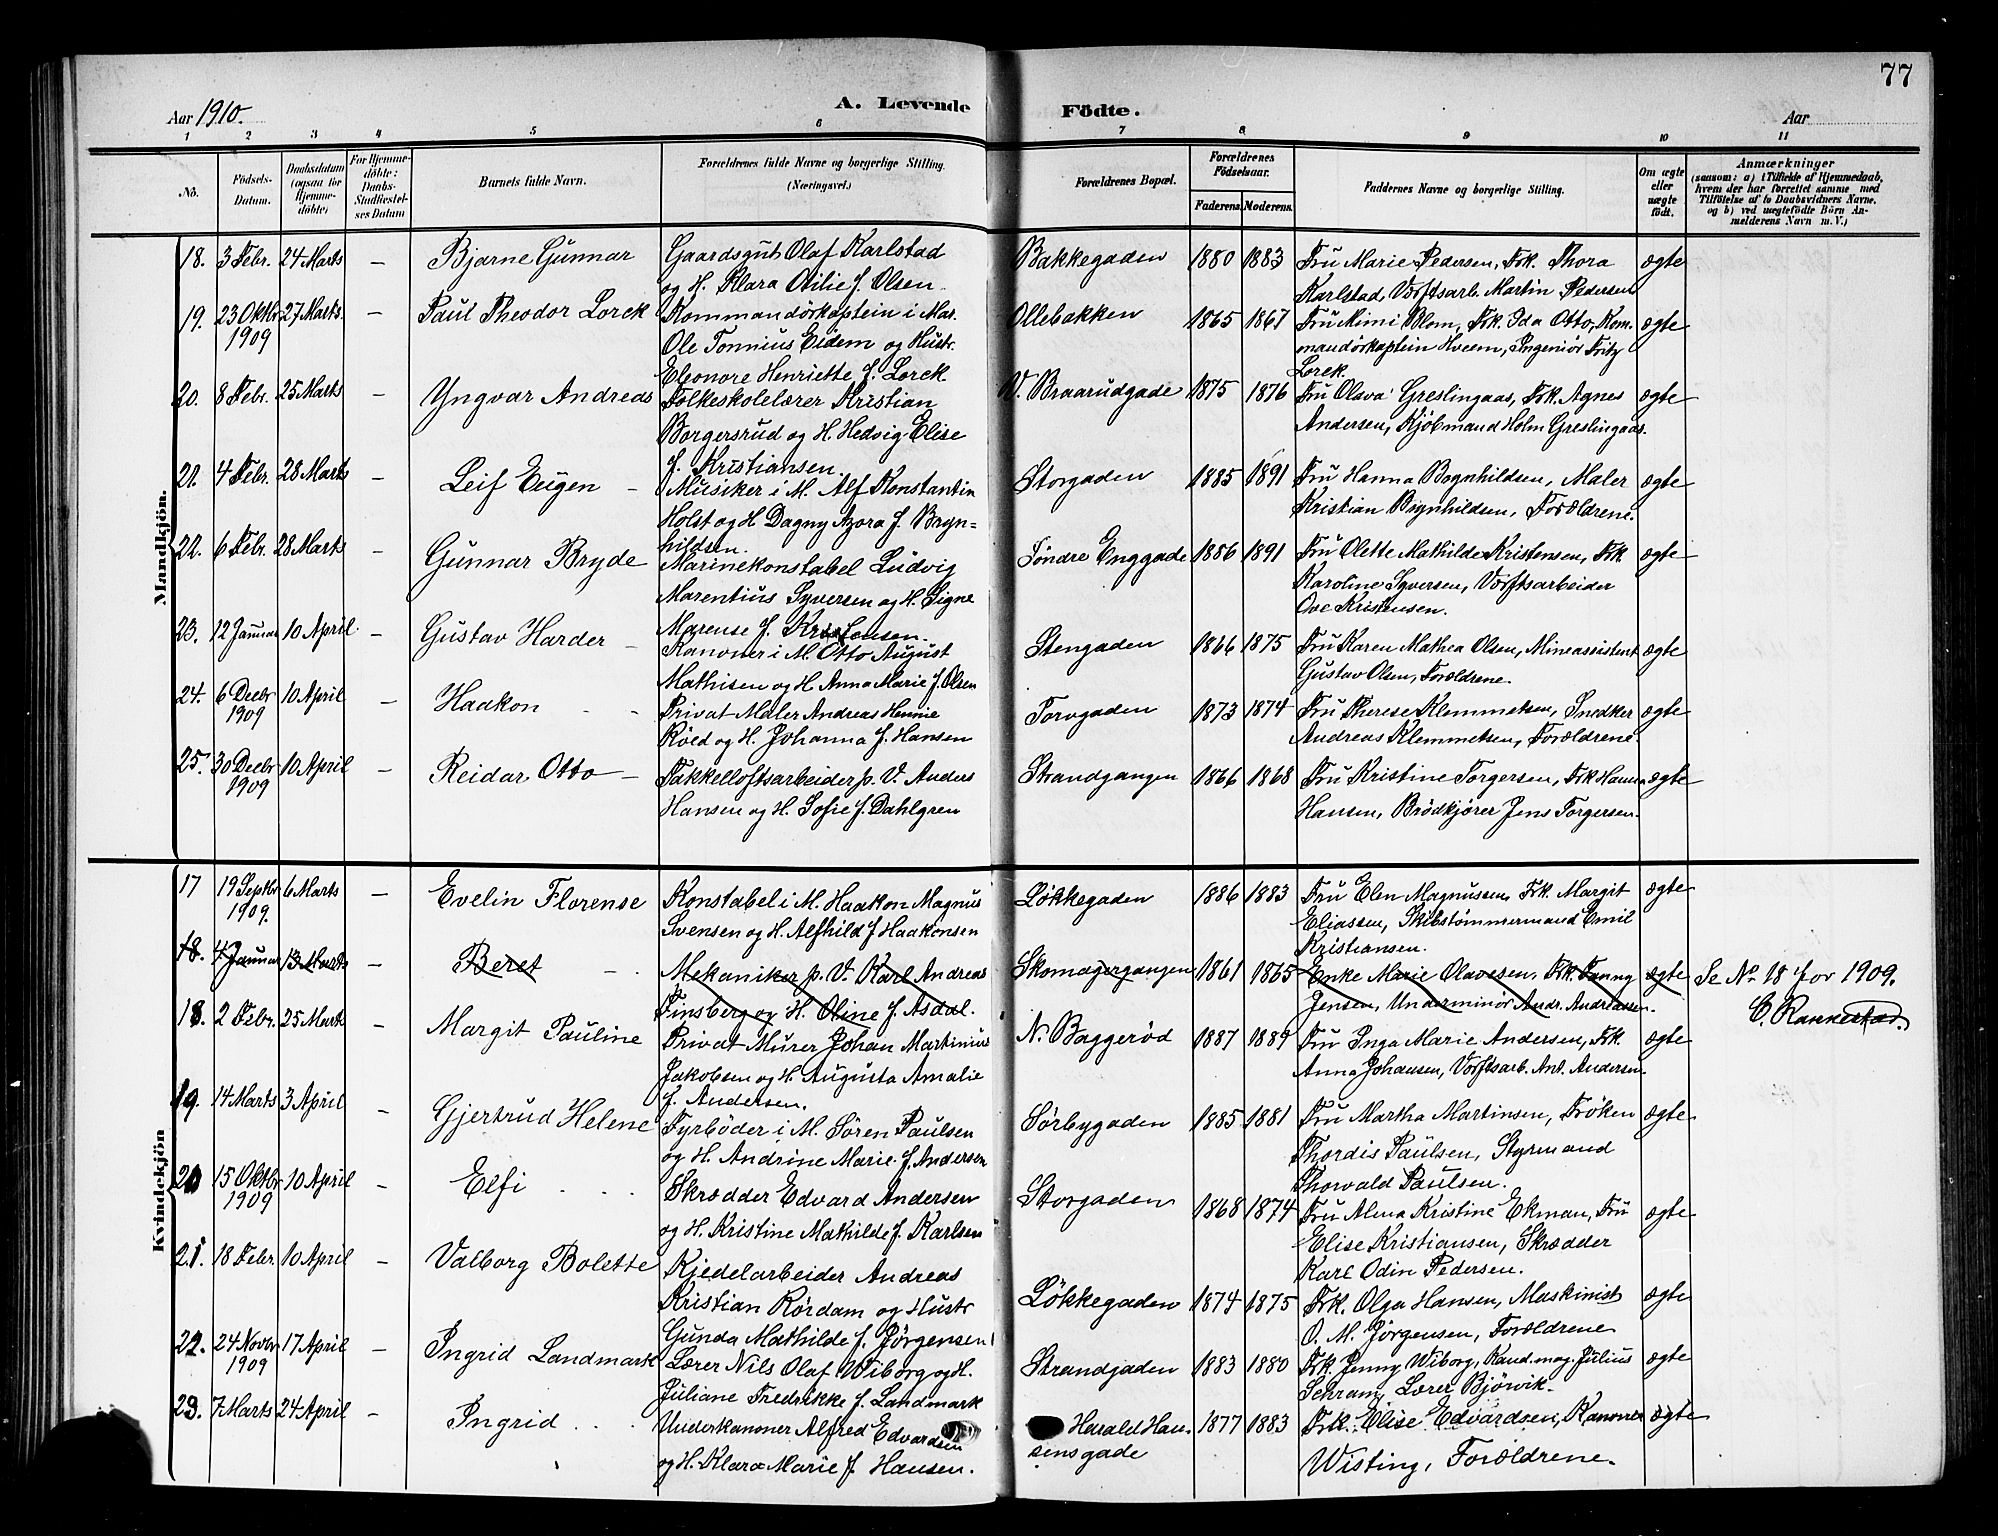 77
Aar 1910.
A. Levende Födte.
Aar
1 2 3 4 5 6 7 8 9 10 11
No. Födsels-Datum. Daabsdatum (ogsaa for Hjemmedöbte) For Hjemmedöbte: Daabs-Stadfæstelses Datum Barnets fulde Navn. Forældrenes fulde Navne og borgerlige Stilling. (Næringsvei.) Forældrenes Bopæl. Forældrenes Födselsaar. Faderens. Moderens. Faddernes Navne og borgerlige Stilling. Om ægte eller uægte födt. Anmærkninger (saasom: a) i Tilfælde af Hjemmedaab, hvem der har forrettet samme med Tilföielse af to Daabsvidners Navne, og b) ved uægtefödte Börn Anmelderens Navn m. V.)
Mandkjön.
18. 3 Febr. 24 Marts — Bjarne Gunnar Gaardsgut Olaf Karlstad Bakkegaden 1880 1883 Fru Marie Pedersen, Frk. Thora ægte
og H. Klara Otilie f. Olsen. Karlstad, Værftsarb. Martin Pedersen
19. 23 Oktbr 27 Marts. — Paul Theodor Lorck Kommandörkaptein i Mar. Ollebakken 1865 1867 Fru Mimi Blom, Frk. Ida Otto, Kom- ægte
1909 Ole Tonnius Eidem og Hustr. mandörkaptein Hveem, Ingeniör Fritz
Eleonore Henriette f. Lorck. Lorck.
20. 8 Febr. 25 Marts — Yngvar Andreas Folkeskolelærer Kristian V. Braarudgade 1875 1876 Fru Olava Greslingaas, Frk. Agnes ægte
Borgersrud og H. Hedvig Elise Andersen, Kjöbmand Holm Greslingaas.
f. Kristiansen.
21. 4 Febr. 28 Marts — Leif Eugen — Musiker i M. Alf Konstantin Storgaden 1885 1891 Fru Hanna Brynhildsen, Maler ægte
Holst og H Dagny Azora f. Bryn= Kristian Brynhildsen, Forældrene.
hildsen.
22. 6 Febr. 28 Marts — Gunnar Bryde Marinekonstabel Ludvig Söndre Enggade 1886 1891 Fru Olette Mathilde Kristensen, Frk. ægte
Marentius Syversen og H. Signe Karoline Syversen, Værftsarbeider
Marense f. Kristensen. Ove Kristensen.
23. 12 Januar 10 April. — Gustav Harder — Kanoner i M. Otto August Stengaden 1866 1875 Fru Karen Mathea Olsen, Mineassistent ægte
Mathisen og H Anna Marie f. Olsen Gustav Olsen, Forældrene.
24. 6 Decbr 10 April — Haakon - - Privat Maler Andreas Hennie Torvgaden 1873 1874 Fru Therese Klemmetsen, Snedker ægte
1909 Röed og H. Johanna f. Hansen Andreas Klemmetsen, Forældrene.
25. 30 Decbr 10 April — Reidar Otto — Takkelloftsarbeider p. V. Anders Strandgangen 1866 1868 Fru Kristine Torgersen, Frk Hanna ægte
1909 Hansen og H. Sofie f. Dahlgren Hansen, Brödkjører Jens Torgersen.
Kvindekjön
17 19 Septbr 6 Marts — Evelin Florense Konstabel i M. Haakon Magnus Løkkegaden 1886 1883 Fru Elen Magnussen, Frk. Margit ægte
1909. Svensen og H. Alfhild f Haakonsen Eliassen, Skibstømmermand Emil
Kristiansen.
18. 4 Januar 13 Marts — Beret - - Mekaniker p. V. Karl Andreas Skomagergangen 1861 1865 Enke Marie Olavesen, Frk. Fanny ægte Se No 18 for 1909.
Finsberg og H. Oline f. Asdal. Jensen, Underminör Andr. Andreassen. C. Rannestad.
18. 2 Febr. 25 Marts — Margit Pauline Privat Murer Johan Martinius N. Baggeröd 1887 1889 Fru Inga Marie Andersen, Frk ægte
Jakobsen og H. Augusta Amalie Anna Johansen, Værftsarb. Ant. Andersen.
f. Andersen.
19. 14 Marts 3 April — Gjertrud Helene Fyrböder i M. Søren Paulsen Sørbygaden 1885 1881 Fru Martha Martinsen, Frøken ægte
og H. Andrine Marie f. Andersen Thordis Paulsen, Styrmand
Thorvald Paulsen.
20 15 Oktbr 10 April — Elfi - - - Skrædder Edvard Andersen Storgaden 1868 1874 Fru Alma Kristine Ekman, Fru ægte
1909 og H. Kristine Mathilde f. Karlsen Elise Kristiansen, Skrædder
Karl Odin Pedersen.
21. 18 Febr. 10 April — Valborg Bolette Kjedelarbeider Andreas Løkkegaden 1874 1875 Frk. Olga Hansen, Maskinist ægte
Kristian Rördam og Hustr O. M. Jørgensen, Forældrene
Gunda Mathilde f. Jørgensen
22. 24 Novbr 17 April — Ingrid Landmark Lærer Nils Olaf Wiborg og H. Strandgaden 1883 1880 Frk Jenny Wiborg, Kand. mag. Julius ægte
1909 Juliane Fredrikke f. Landmark Schram, Lærer Bjørvik.
23. 7 Marts 24 April — Ingrid - - Underkanoner Alfred Edvardsen Harald Haa- 1877 1883 Frk. Elise Edvardsen, Kanoner ægte
og H. Klara Marie f. Hansen. sensgade Wisting, Forældrene.